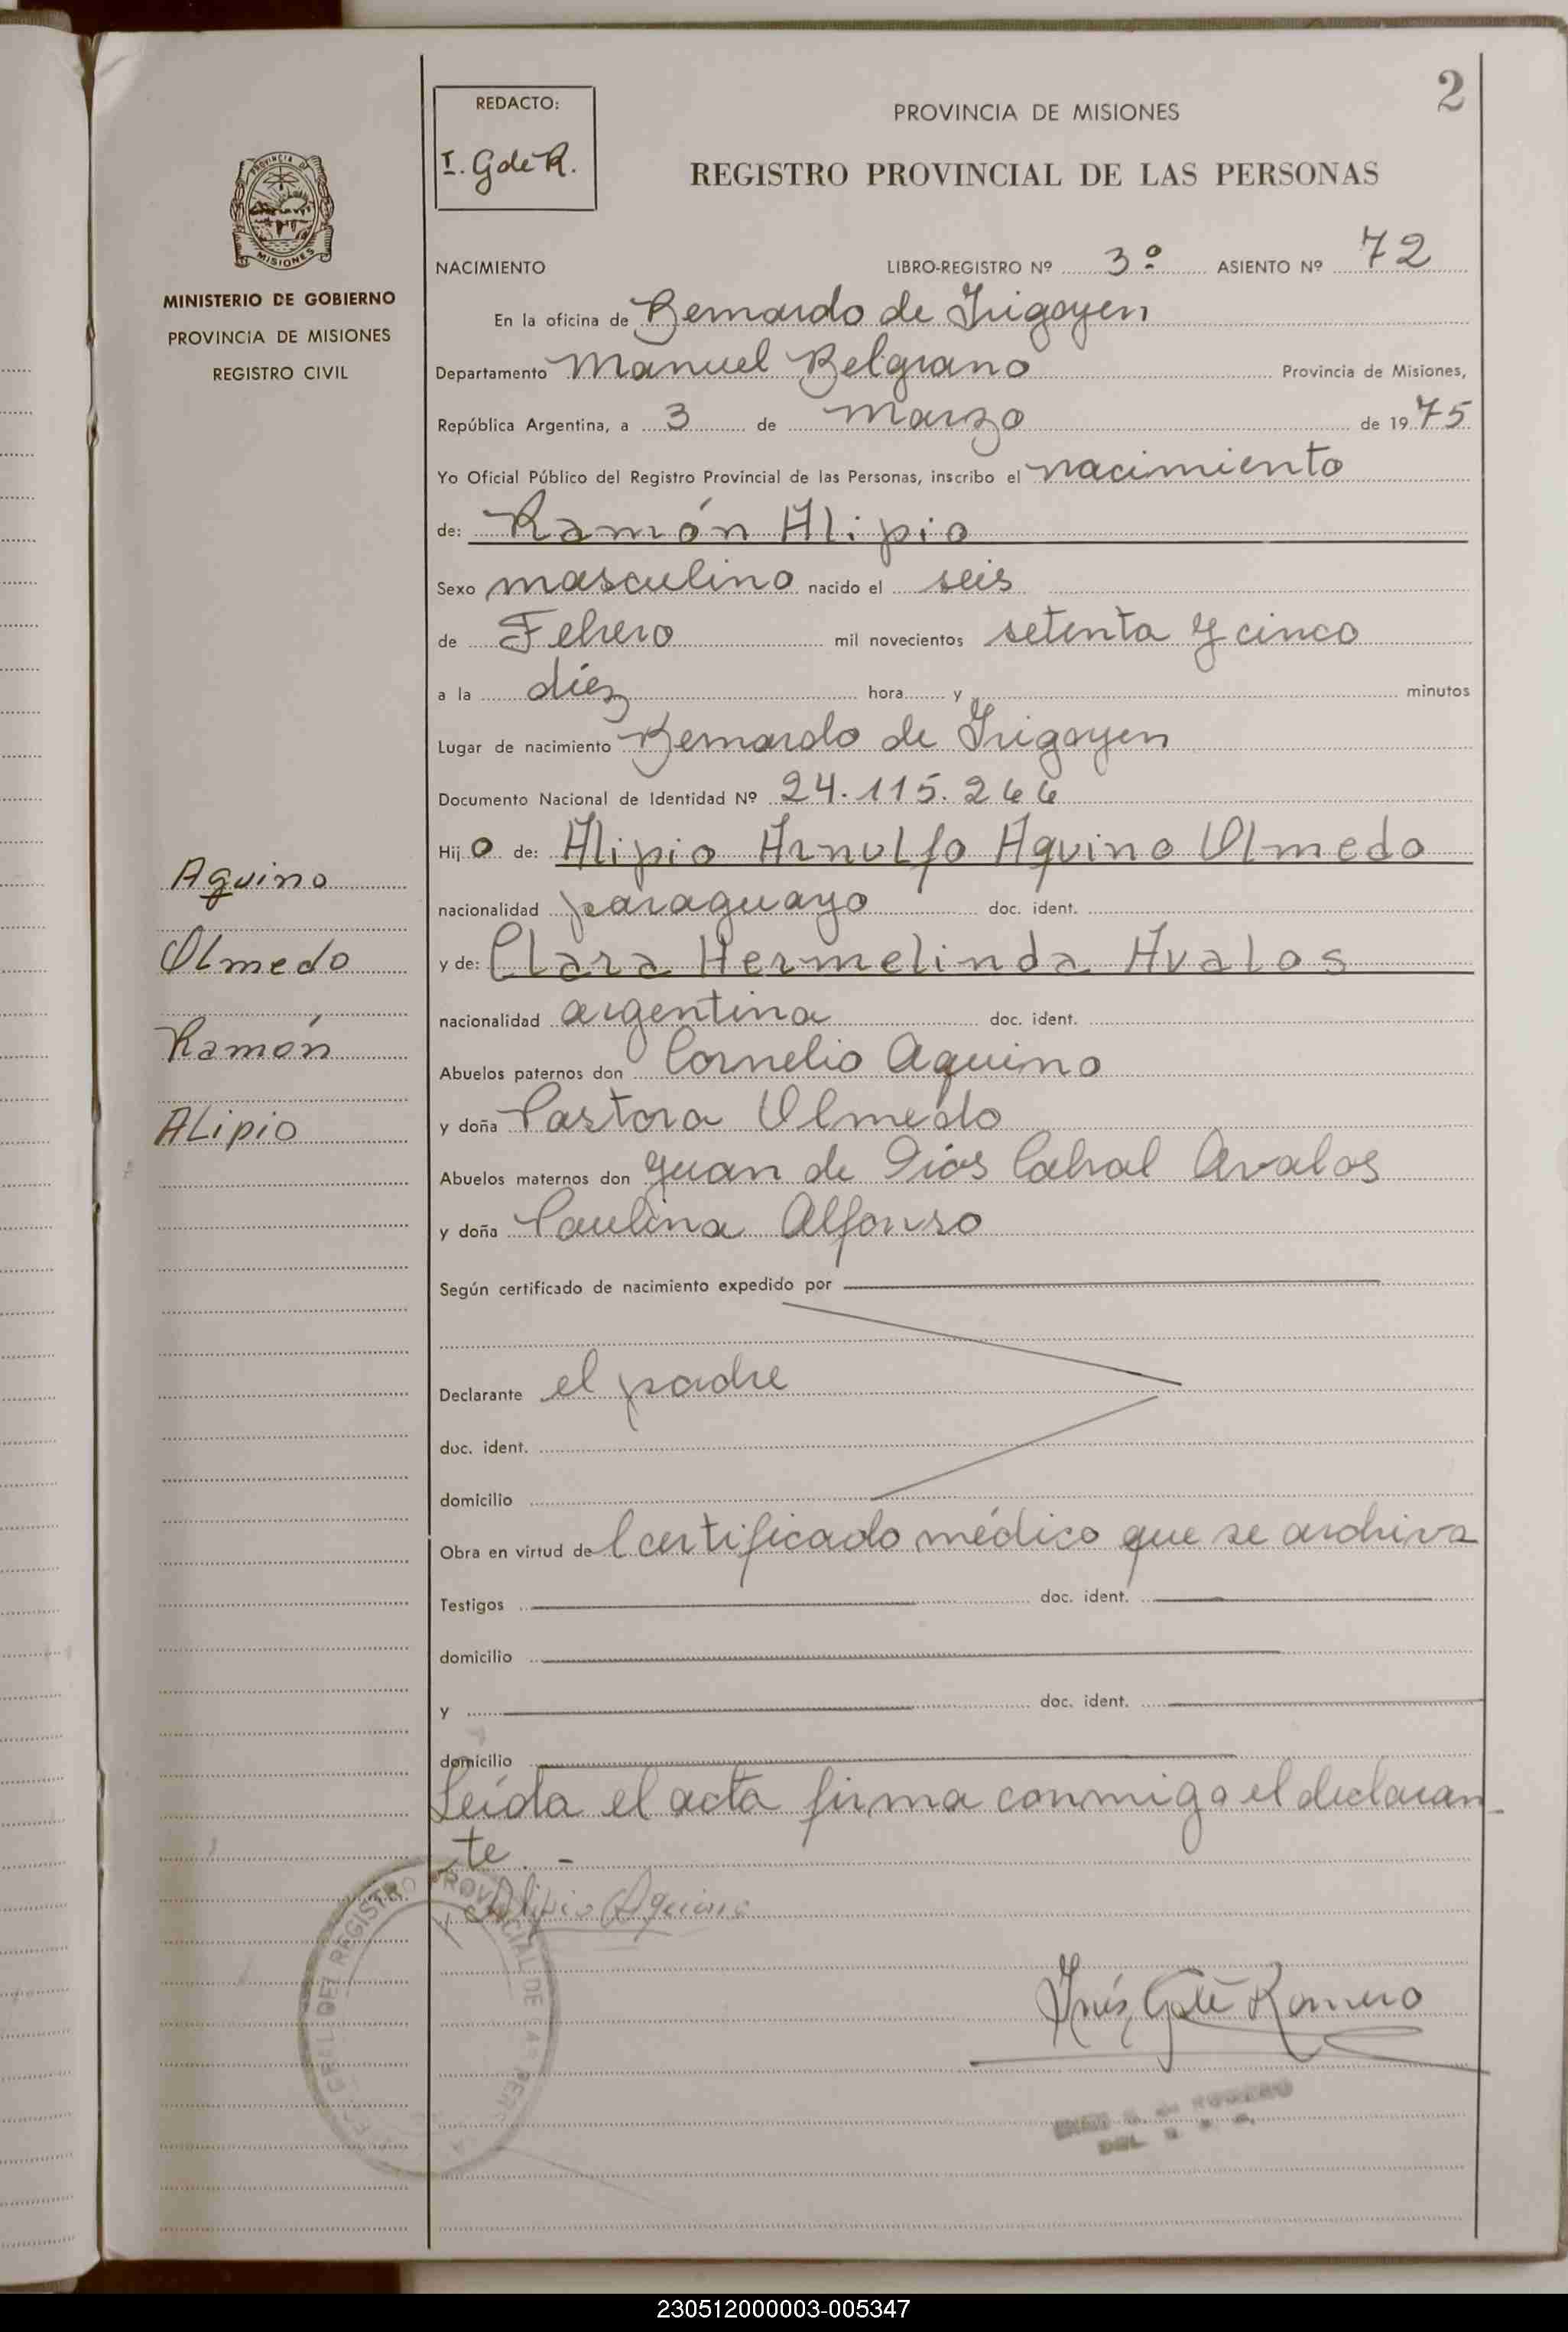 2
REDACTO:
I. G de R.
PROVINCIA DE MISIONES
REGISTRO PROVINCIAL DE LAS PERSONAS
PROVINCIA DE
MISIONES
MINISTERIO DE GOBIERNO
PROVINCIA DE MISIONES
REGISTRO CIVIL
NACIMIENTO LIBRO-REGISTRO Nº 3º ASIENTO Nº 72
En la oficina de Bernardo de Irigoyen
Departamento Manuel Belgrano Provincia de Misiones,
República Argentina, a 3 de marzo de 1975
Yo Oficial Público del Registro Provincial de las Personas, inscribo el nacimiento
de: Ramón Alipio
Sexo masculino nacido el seis
de Febrero mil novecientos setenta y cinco
a la diez hora y minutos
Lugar de nacimiento Bernardo de Irigoyen
Documento Nacional de Identidad Nº 24.115.266
Hijo de: Alipio Arnulfo Aquino Olmedo
nacionalidad paraguayo doc. ident.
y de: Clara Hermelinda Avalos
nacionalidad argentina doc. ident.
Abuelos paternos don Cornelio Aquino
y doña Pastora Olmedo
Abuelos maternos don Juan de Dios Cabral Avalos
y doña Paulina Alfonso
Aquino
Olmedo
Ramón
Alipio
Según certificado de nacimiento expedido por
Declarante el padre
doc. ident.
domicilio
Obra en virtud del certificado médico que se archiva
Testigos doc. ident.
domicilio
y doc. ident.
domicilio
Leída el acta firma conmigo el declaran-
te. -
Alipio Aquino
DEL REGISTRO PROVINCIAL DE
Inés G de Romero
230512000003-005347